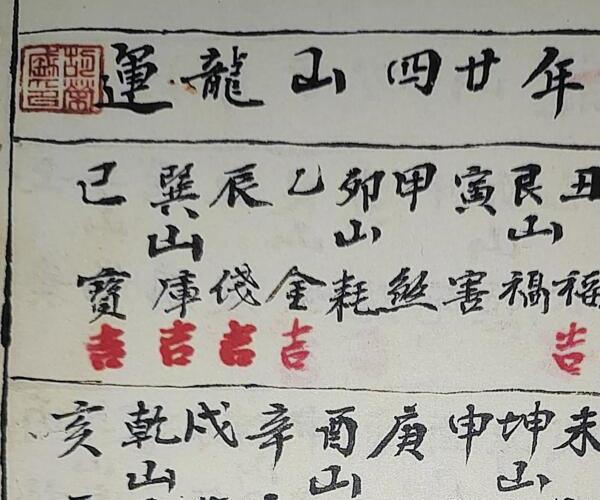 年廿四山龍運
丑福吉
艮山禍
寅害
甲煞
卯山耗
乙金吉
辰吉
巽山庫吉
巳寶吉
未
坤山
申
庚
酉山
辛
戌
乾山
亥